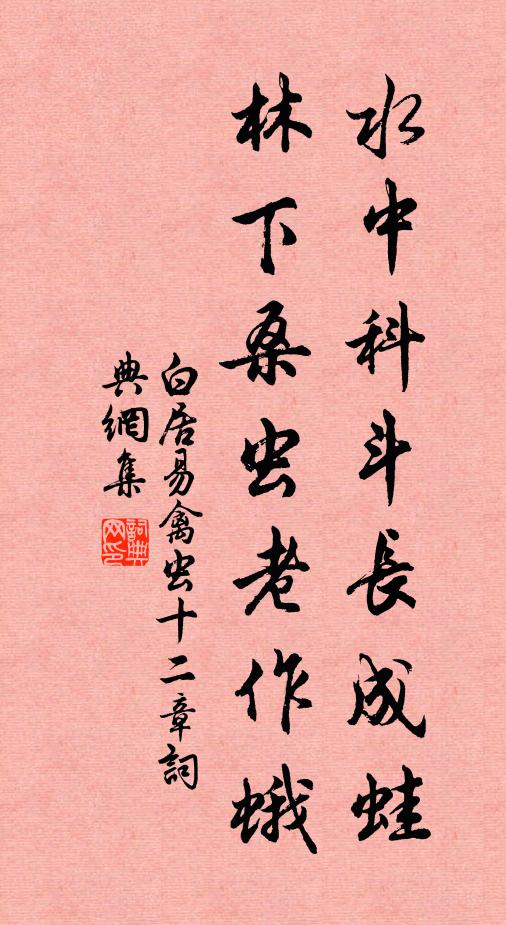 水中科斗長成蛙
林下桑虫老作蛾
白居易禽虫十二章詞
典網集
詞典網印